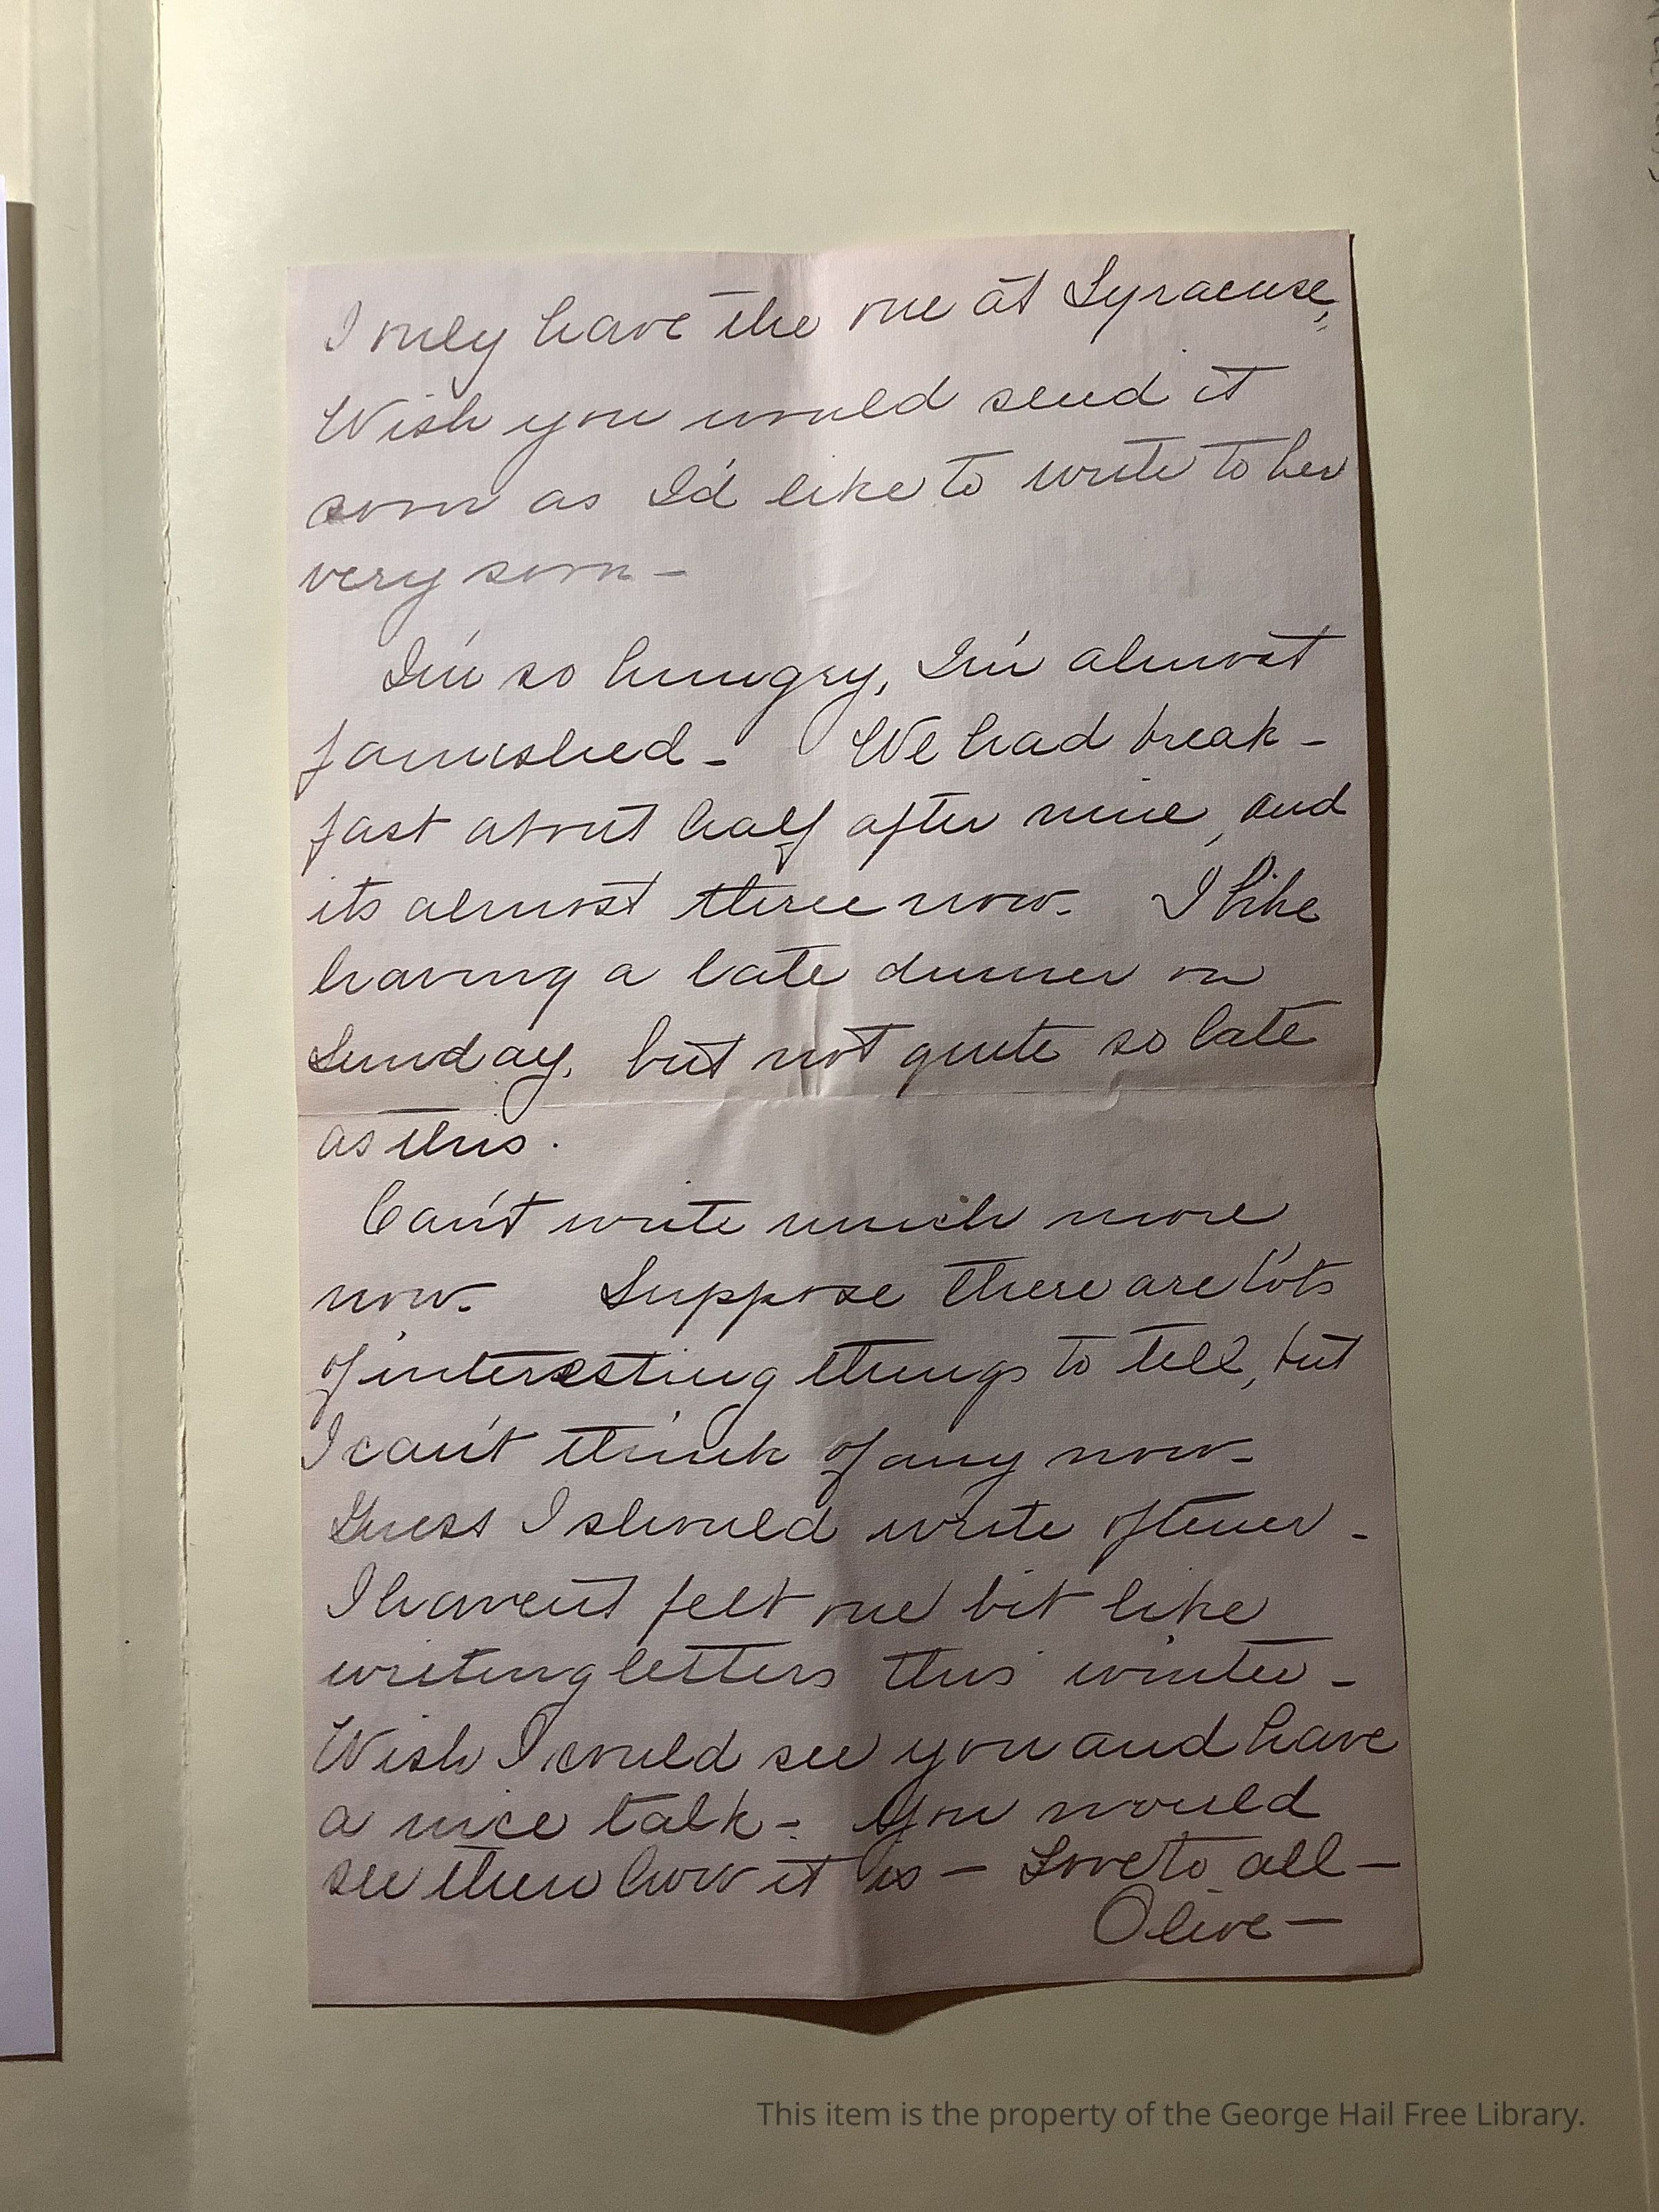 I only have the one at Syracuse,
Wish you would send it
soon as I'd like to write to her
very soon -
I'm so hungry, I'm almost
famished - We had break -
fast about half after nine, and
its almost three now. I like
having a late dinner on
Sunday, but not quite so late
as this.
Can't write much more
now. Suppose there are lots
of interesting things to tell, but
I can't think of any now -
Guess I should write oftener -
I haven't felt one bit like
writing letters this winter -
Wish I could see you and have
a nice talk - You would
see then how it is - Love to all -
Olive -
This item is the property of the George Hail Free Library.